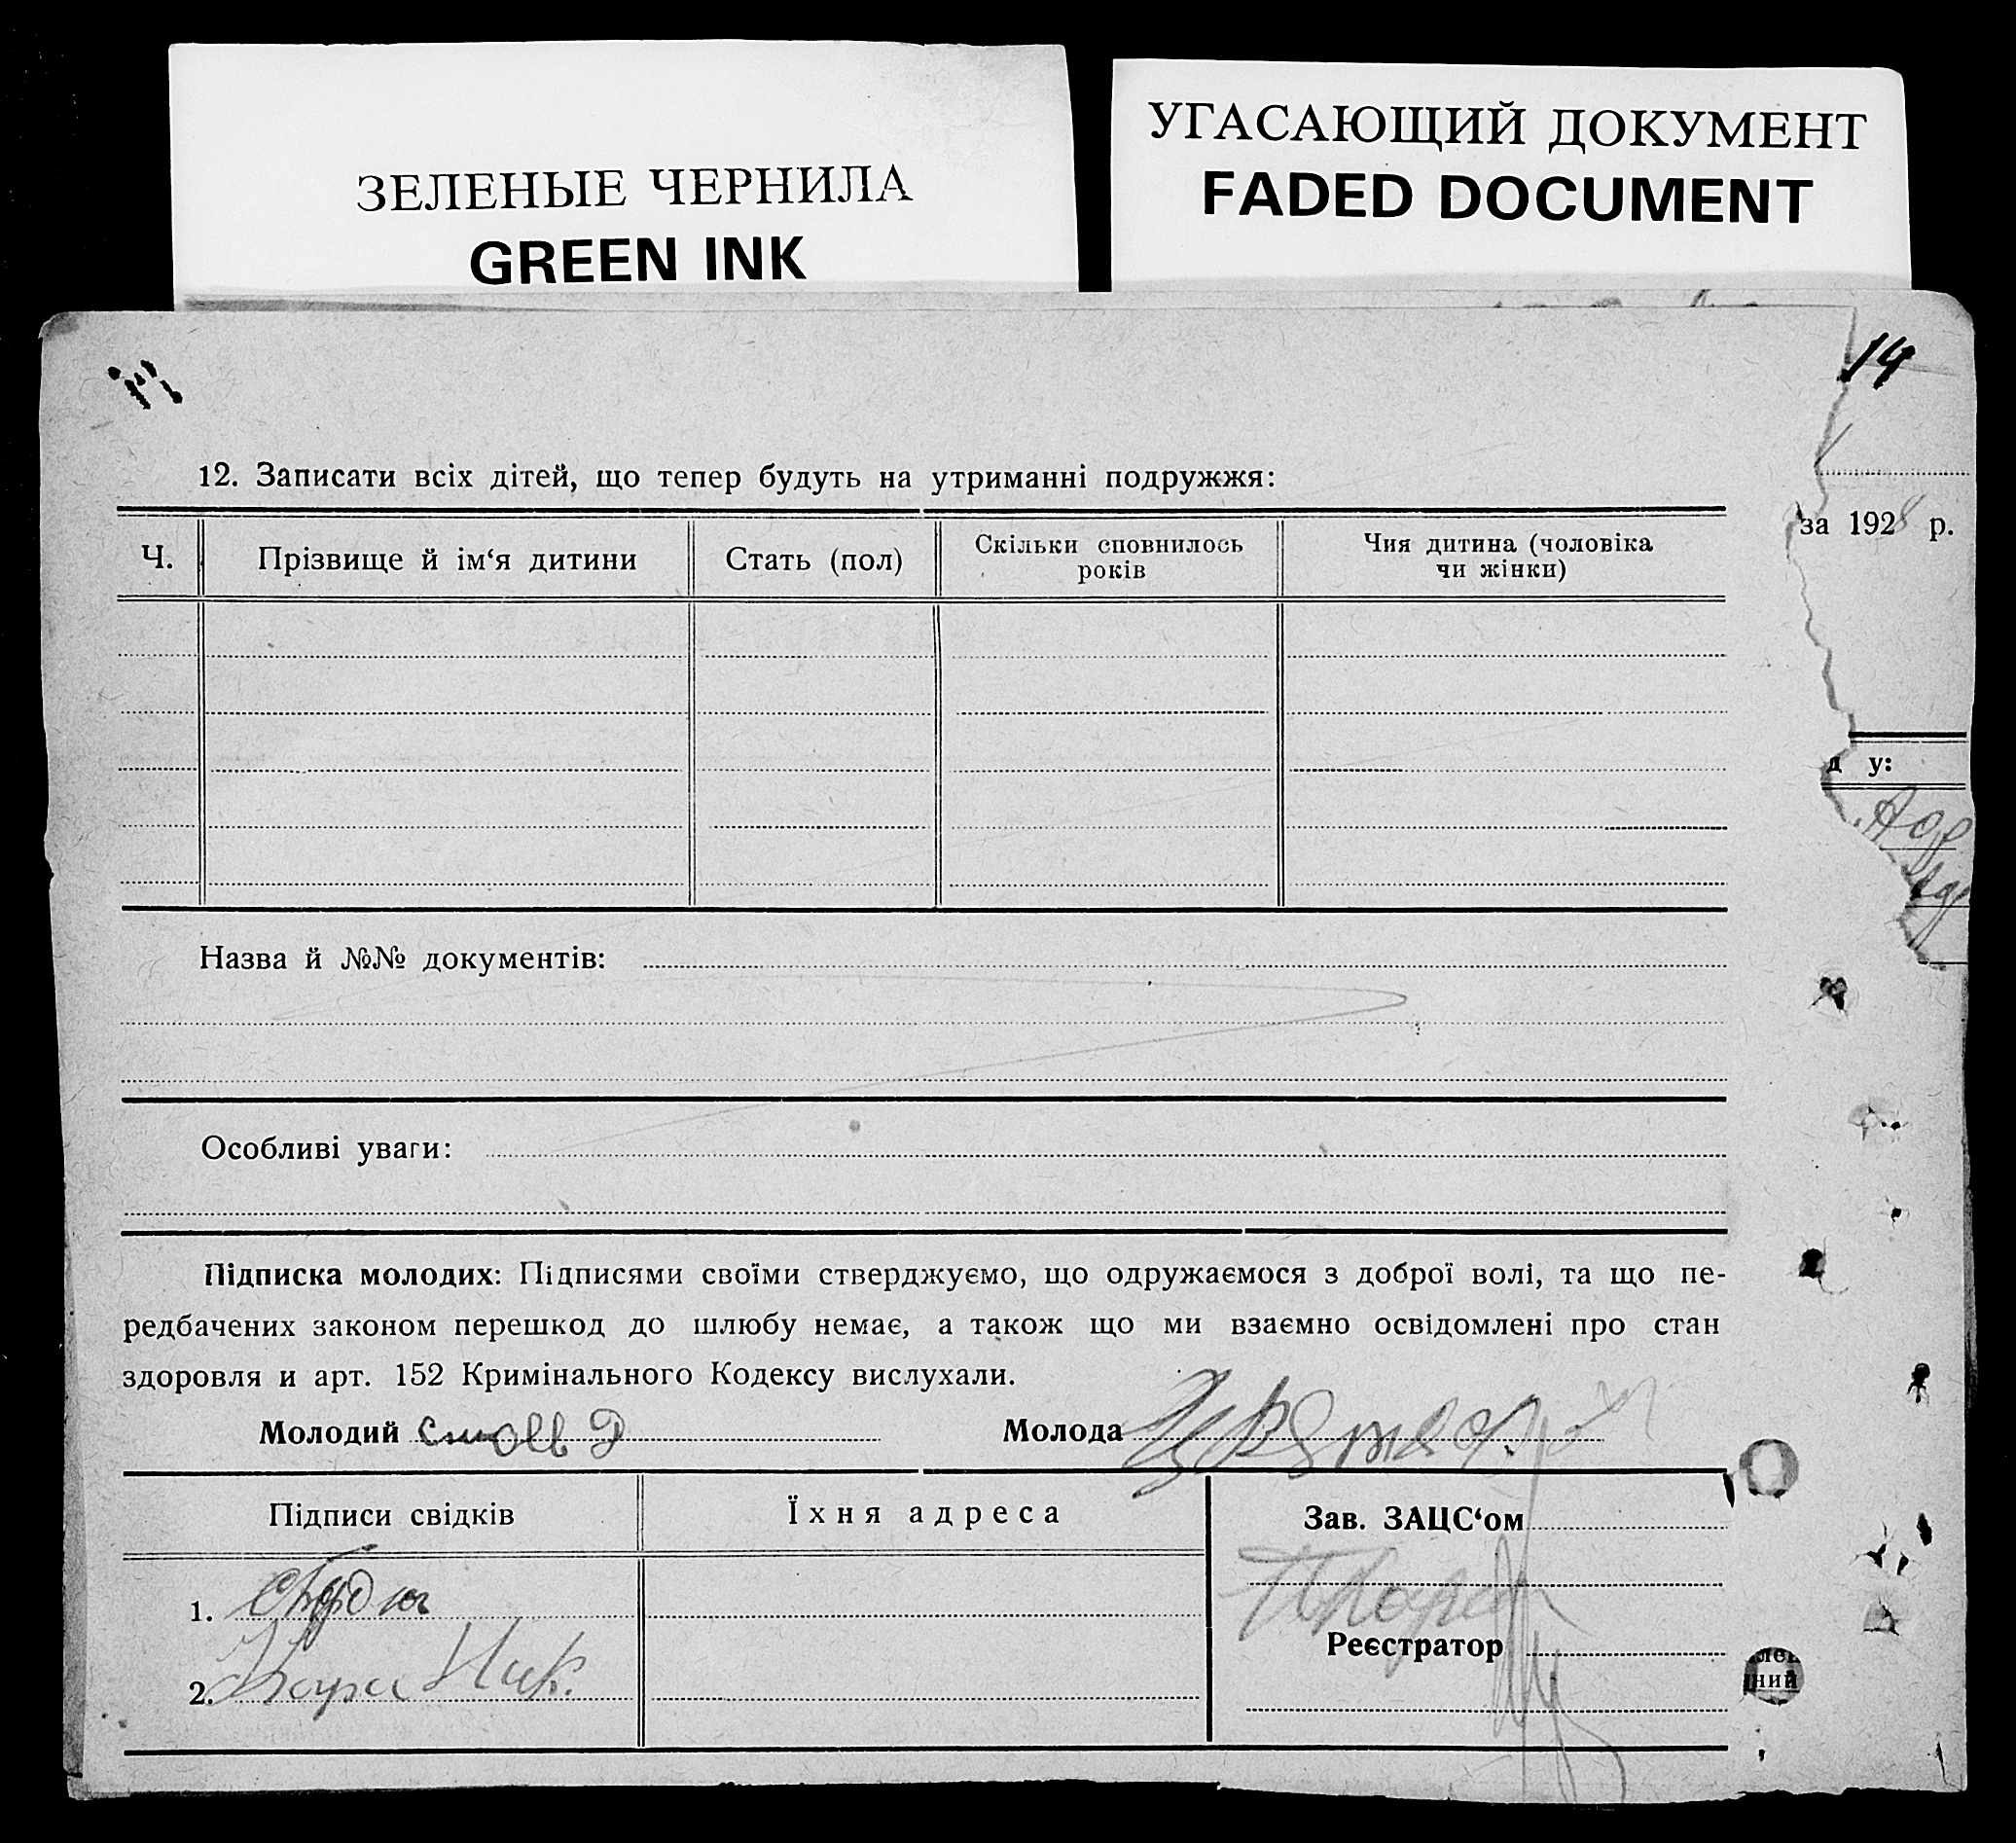 ЗЕЛЕНЫЕ ЧЕРНИЛА
GREEN INK
УГАСАЮЩИЙ ДОКУМЕНТ
FADED DOCUMENT
14
12. Записати всіх дітей, що тепер будуть на утриманні подружжя:
за 1928 р.
Ч.
Прізвище й ім‘я дитини
Стать (пол)
Скільки сповнилось
років
Чия дитина (чоловіка
чи жінки)
д у:
Назва й №№ документів:
Особливі уваги:
Підписка молодих: Підписями своїми стверджуємо, що одружаємося з доброї волі, та що пе-
редбачених законом перешкод до шлюбу немає, а також що ми взаємно освідомлені про стан
здоровля и арт. 152 Кримінального Кодексу вислухали.
Молодий
Молода
Підписи свідків
Їхня адреса
Зав. ЗАЦС‘ом
1.
Реєстратор
2.
ний